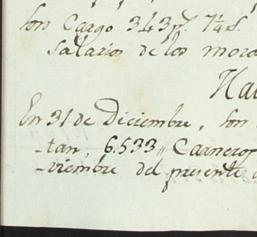 son Cargo 343 p.s 7¼ r.s
Salarios de los mora
Ha
En 31 de Diciembre, son
-tan, 6.533 " Carneros
-viembre del presente